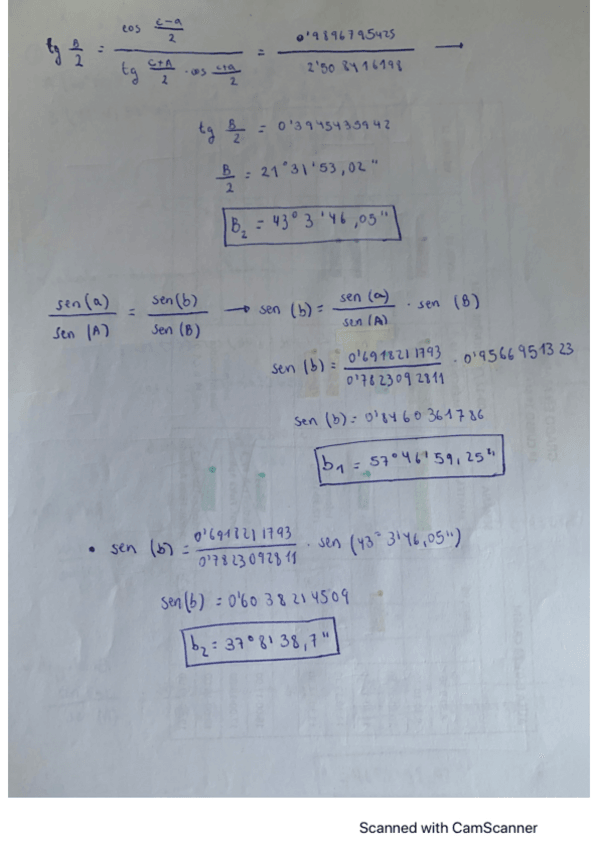 tg B/2 = cos (c-a)/2 / (tg (C+A)/2 · cos (c+a)/2) = 0'9896795425 / 2'508416198 →
tg B/2 = 0'3945435942
B/2 = 21° 31' 53,02"
B₂ = 43° 3' 46,05"
sen(a)/sen(A) = sen(b)/sen(B) → sen (b) = sen(a)/sen(A) · sen (B)
sen (b) = 0'6912211793/0'7823092811 · 0'9566951323
sen (b) = 0'8460361786
b₁ = 57° 46' 59,25"
• sen (b) = 0'6912211793/0'7823092811 · sen (43° 3' 46,05")
sen(b) = 0'6038214509
b₂ = 37° 8' 38,7"
Scanned with CamScanner